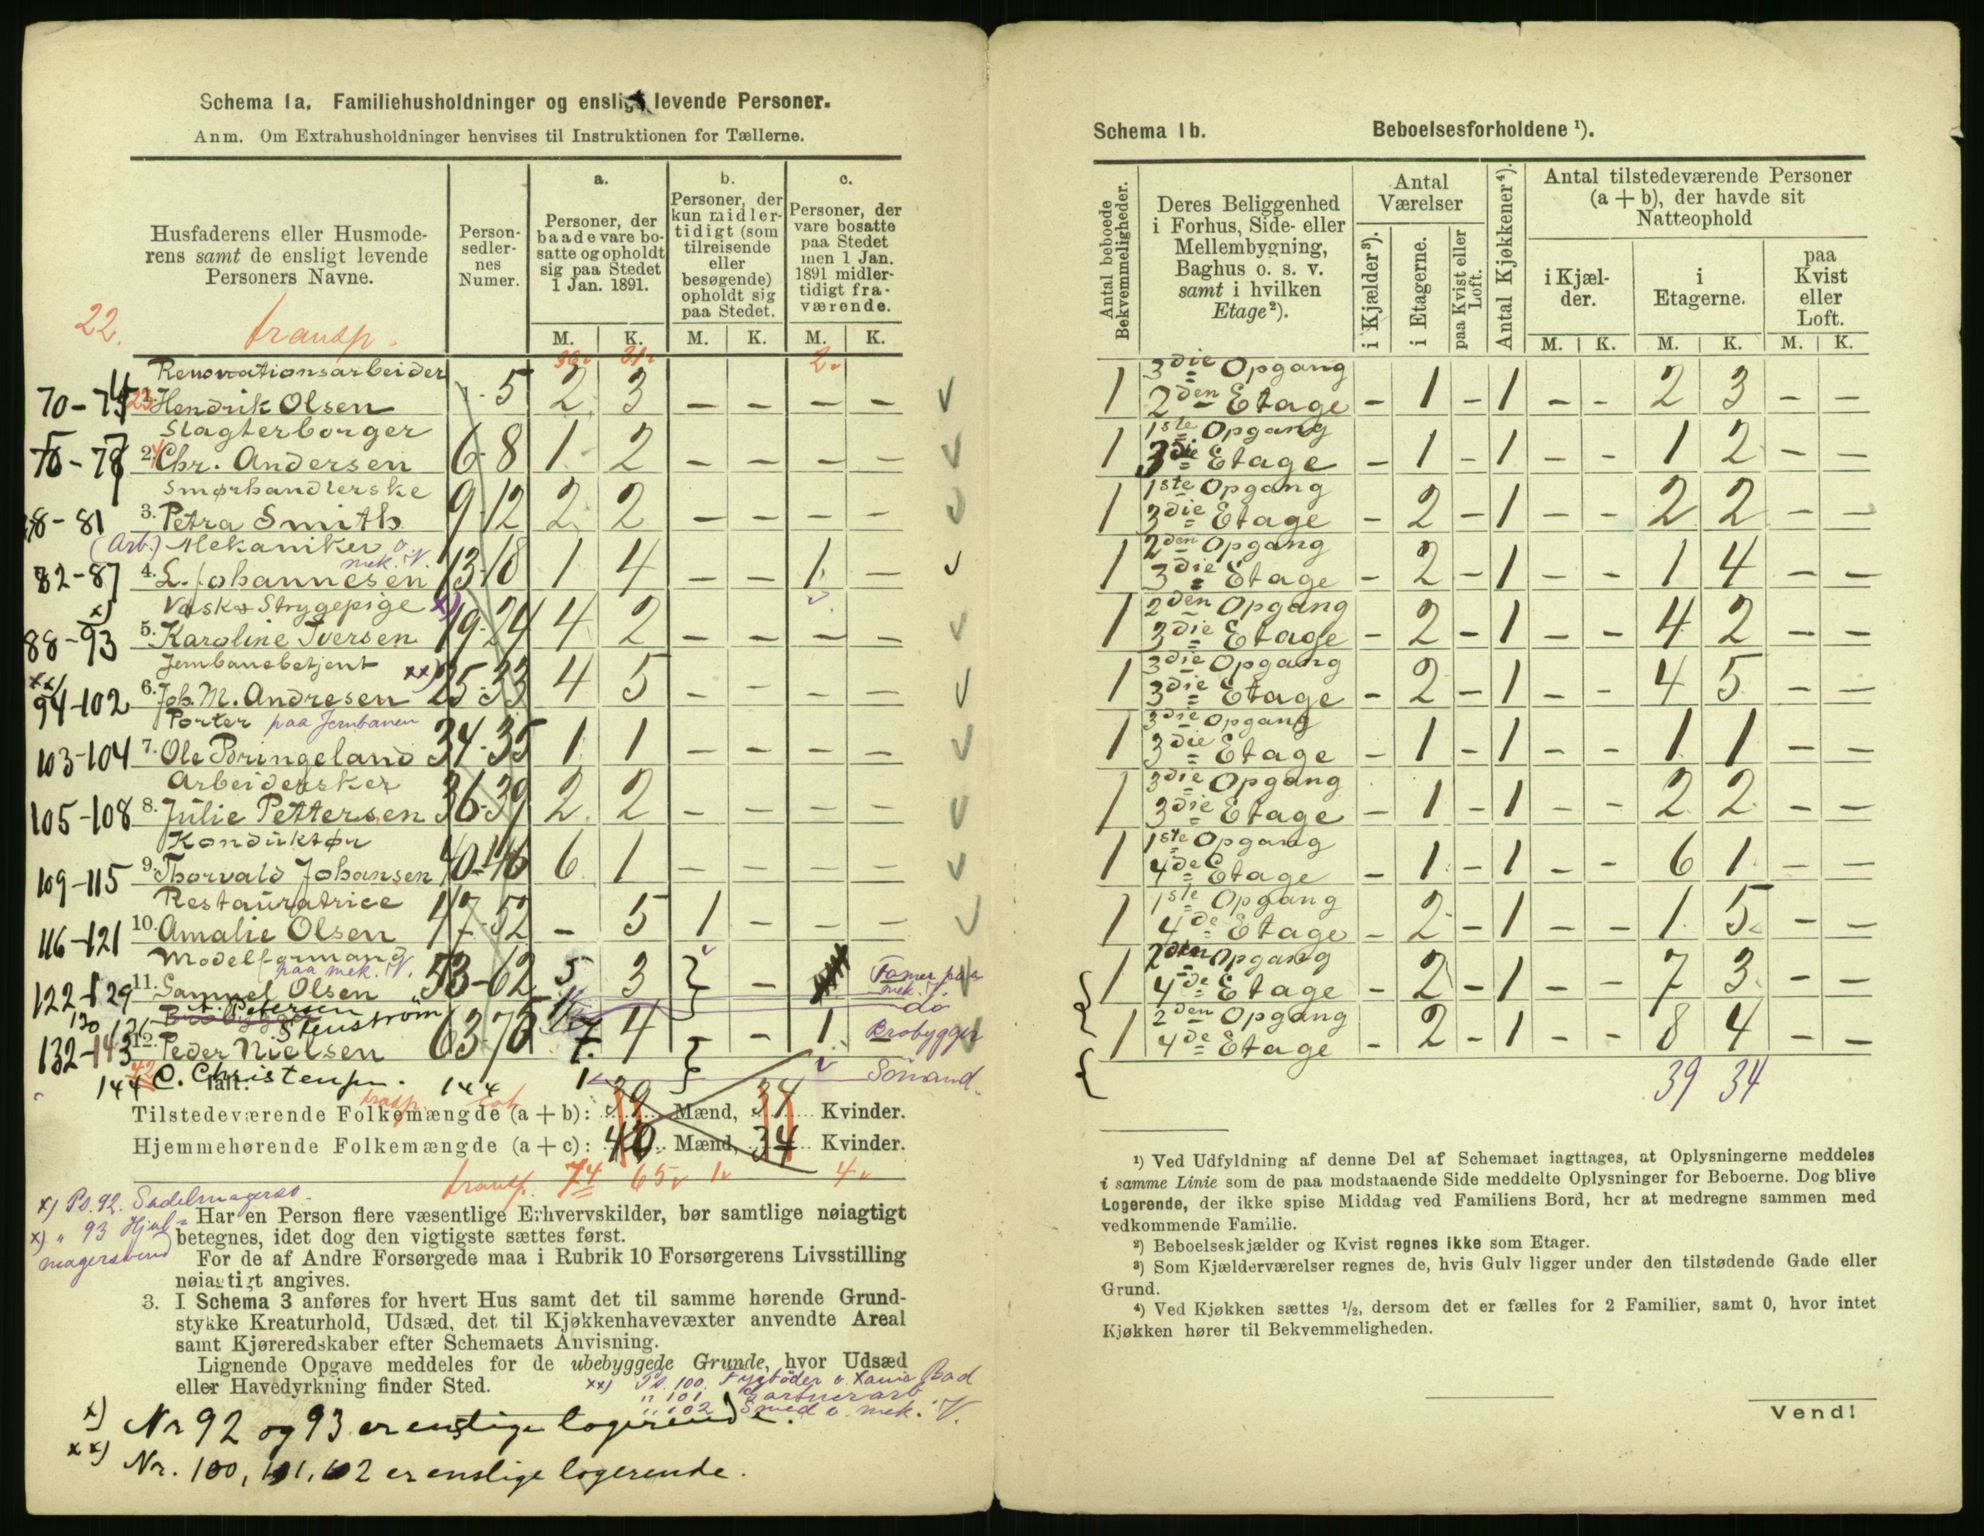 Schema 1a. Familiehusholdninger og ensligt levende Personer.
Anm. Om Extrahusholdninger henvises til Instruktionen for Tællerne.
Husfaderens eller Husmoderens samt de ensligt levende Personers Navne.
Personsedlernes Numer.
a. Personer, der baade vare bosatte og opholdt sig paa Stedet 1 Jan. 1891.
b. Personer, der kun midlertidigt (som tilreisende eller besøgende) opholdt sig paa Stedet.
c. Personer, der vare bosatte paa Stedet men 1 Jan. 1891 midlertidigt fraværende.
M. K. M. K. M. K.
22. transp. 36 31 2
Renovationsarbeider
70-74 23 1. Hendrik Olsen 1-5 2 3 – – – –
Slagterborger
75-77 2. Chr. Andersen 6-8 1 2 – – – –
Smørhandlerske
78-81 3. Petra Smith 9-12 2 2 – – – –
(Arb.) Mekaniker o. mek. V.
82-87 4. L. Johannesen 13-18 1 4 – – 1 –
x) Vask o Strygepige x)
88-93 5. Karoline Iversen 19-24 4 2 – – – –
Jernbanebetjent xx)
xx) 94-102 6. Joh. M. Andresen 25-33 4 5 – – – –
Porter paa Jernbanen
103-104 7. Ole Bringeland 34-35 1 1 – – – –
Arbeidersker
105-108 8. Julie Pettersen 36-39 2 2 – – – –
Konduktør
109-115 9. Thorvald Johansen 40-46 6 1 – – – –
Restauratrice
116-121 10. Amalie Olsen 47-52 – 5 1 – – –
Modelformand paa mek. V.
122-129 11. Samuel Olsen 53-62 5 3 – Former paa mek. V.
130 Petersen do
131 Stenstrøm
132-143 12. Peder Nielsen 63-75 7 4 – 1 Brobygger
144 C. Christensen. 144 1 Sømand.
Ialt:
Tilstedeværende Folkemængde (a+b): 39 Mænd, 34 Kvinder.
Hjemmehørende Folkemængde (a+c): 40 Mænd, 34 Kvinder.
transp. 74 65 1 4
x) Ps. 92. Sadelmagersv.
x) " 93 Hjulmagersvend
Har en Person flere væsentlige Erhvervskilder, bør samtlige nøiagtigt
betegnes, idet dog den vigtigste sættes først.
For de af Andre Forsørgede maa i Rubrik 10 Forsørgerens Livsstilling
nøiagtigt angives.
3. I Schema 3 anføres for hvert Hus samt det til samme hørende Grund-
stykke Kreaturhold, Udsæd, det til Kjøkkenhavevæxter anvendte Areal
samt Kjøreredskaber efter Schemaets Anvisning.
Lignende Opgave meddeles for de ubebyggede Grunde, hvor Udsæd
eller Havedyrkning finder Sted.
xx) Ps. 100. Fyrbøder o. Xania Bad
" 101 Gartnerarb
" 102 Smed o. mek. V.
x) Nr 92 og 93 er enslige logerende.
xx) Nr. 100, 101, 102 er enslige logerende.
Schema 1b. Beboelsesforholdene ¹).
Antal beboede Bekvemmeligheder.
Deres Beliggenhed i Forhus, Side- eller Mellembygning, Baghus o. s. v. samt i hvilken Etage²).
Antal Værelser
i Kjælder³).
i Etagerne.
paa Kvist eller Loft.
Antal Kjøkkener⁴).
Antal tilstedeværende Personer (a + b), der havde sit Natteophold
i Kjælder.
i Etagerne.
paa Kvist eller Loft.
M. K. M. K. M. K.
1 3die Opgang
2den Etage – 1 – 1 – – 2 3 – –
1 1ste Opgang
3die Etage – 1 – 1 – – 1 2 – –
1 1ste Opgang
3die Etage – 2 – 1 – – 2 2 – –
1 2den Opgang
3die Etage – 2 – 1 – – 1 4 – –
1 2den Opgang
3die Etage – 2 – 1 – – 4 2 – –
1 3die Opgang
3die Etage – 2 – 1 – – 4 5 – –
1 3die Opgang
3die Etage – 1 – 1 – – 1 1 – –
1 3die Opgang
3die Etage – 1 – 1 – – 2 2 – –
1 1ste Opgang
4de Etage – 1 – 1 – – 6 1 – –
1 1ste Opgang
4de Etage – 2 – 1 – – 1 5 – –
1 2den Opgang
4de Etage – 2 – 1 – – 7 3 – –
1 2den Opgang
4de Etage – 2 – 1 – – 8 4 – –
39 34
¹) Ved Udfyldning af denne Del af Schemaet iagttages, at Oplysningerne meddeles
i samme Linie som de paa modstaaende Side meddelte Oplysninger for Beboerne. Dog blive
Logerende, der ikke spise Middag ved Familiens Bord, her at medregne sammen med
vedkommende Familie.
²) Beboelseskjælder og Kvist regnes ikke som Etager.
³) Som Kjælderværelser regnes de, hvis Gulv ligger under den tilstødende Gade eller
Grund.
⁴) Ved Kjøkken sættes ½, dersom det er fælles for 2 Familier, samt 0, hvor intet
Kjøkken hører til Bekvemmeligheden.
Vend!